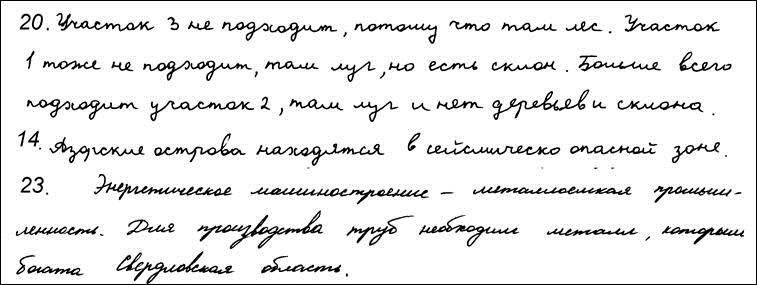 20. Участок 3 не подходит, потому что там лес. Участок
1 тоже не подходит, там луг, но есть склон. Больше всего
подходит участок 2, там луг и нет деревьев и склона.
14. Азорские острова находятся в сейсмическо опасной зоне.
23. Энергетическое машиностроение – металлоемкая промыш-
ленность. Для производства труб необходим металл, которым
богата Свердловская область.